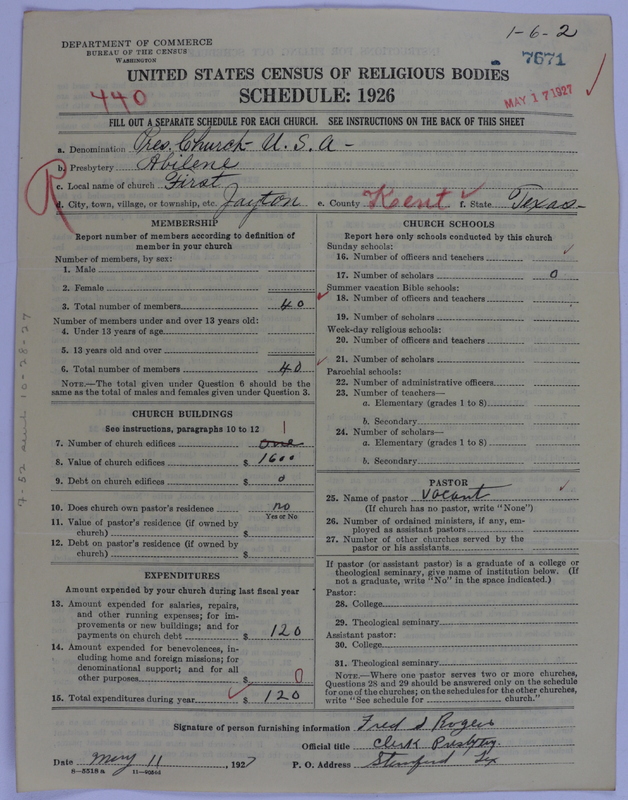 1-6-2
DEPARTMENT OF COMMERCE
BUREAU OF THE CENSUS
WASHINGTON
7671
UNITED STATES CENSUS OF RELIGIOUS BODIES
440
SCHEDULE: 1926
MAY 17 1927
FILL OUT A SEPARATE SCHEDULE FOR EACH CHURCH. SEE INSTRUCTIONS ON THE BACK OF THIS SHEET
a. Denomination Pres. Church U. S. A -
b. Presbytery Abilene
c. Local name of church First
R
d. City, town, village, or township, etc. Jayton e. County Kent f. State Texas-
MEMBERSHIP
Report number of members according to definition of
member in your church
Number of members, by sex:
1. Male
2. Female
3. Total number of members 40
Number of members under and over 13 years old:
4. Under 13 years of age
5. 13 years old and over
6. Total number of members 40
NOTE.—The total given under Question 6 should be the
same as the total of males and females given under Question 3.
CHURCH BUILDINGS
See instructions, paragraphs 10 to 12
7. Number of church edifices One 1
8. Value of church edifices $ 1600
9. Debt on church edifices $ 0
10. Does church own pastor's residence no
Yes or No
11. Value of pastor's residence (if owned by
church) $
12. Debt on pastor's residence (if owned by
church) $
EXPENDITURES
Amount expended by your church during last fiscal year
13. Amount expended for salaries, repairs,
and other running expenses; for im-
provements or new buildings; and for
payments on church debt $ 120
14. Amount expended for benevolences, in-
cluding home and foreign missions; for
denominational support; and for all
other purposes $ 0
15. Total expenditures during year $ 120
CHURCH SCHOOLS
Report here only schools conducted by this church
Sunday schools:
16. Number of officers and teachers
17. Number of scholars 0
Summer vacation Bible schools:
18. Number of officers and teachers
19. Number of scholars
Week-day religious schools:
20. Number of officers and teachers
21. Number of scholars
Parochial schools:
22. Number of administrative officers
23. Number of teachers—
a. Elementary (grades 1 to 8)
b. Secondary
24. Number of scholars—
a. Elementary (grades 1 to 8)
b. Secondary
PASTOR
25. Name of pastor vacant
(If church has no pastor, write "None")
26. Number of ordained ministers, if any, em-
ployed as assistant pastors
27. Number of other churches served by the
pastor or his assistants
If pastor (or assistant pastor) is a graduate of a college or
theological seminary, give name of institution below. (If
not a graduate, write "No" in the space indicated.)
Pastor:
28. College
29. Theological seminary
Assistant pastor:
30. College
31. Theological seminary
NOTE.—Where one pastor serves two or more churches,
Questions 28 and 29 should be answered only on the schedule
for one of the churches; on the schedules for the other churches,
write "See schedule for church."
Signature of person furnishing information Fred S Rogers
Official title Clerk Presbytery.
Date May 11, 1927 P. O. Address Stamford Tex
8-5518 a
7-52 10-28-27